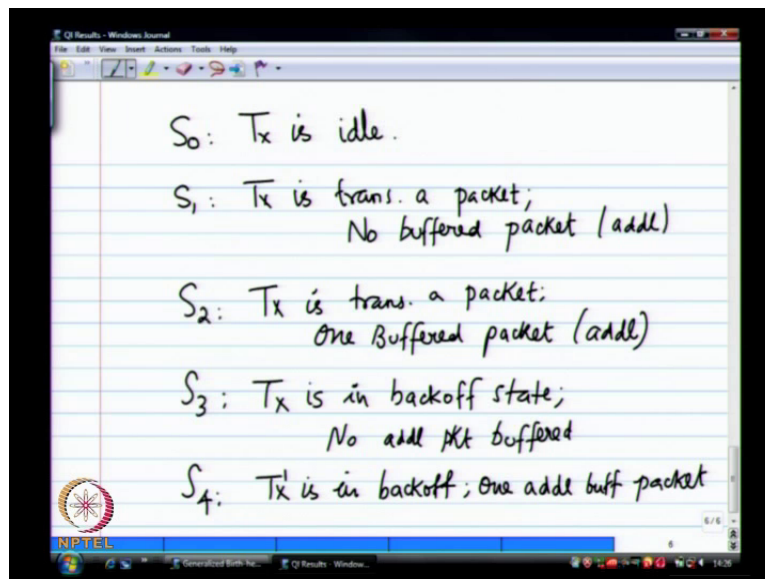 QI Results - Windows Journal
File Edit View Insert Actions Tools Help
S0: Tx is idle.
S1: Tx is trans. a packet;
No buffered packet (addl)
S2: Tx is trans. a packet;
One Buffered packet (addl)
S3: Tx is in backoff state;
No addl pkt buffered
S4: Tx is in backoff; One addl buff packet
6/6
6
NPTEL
Generalized Birth-he...
QI Results - Window...
14:26